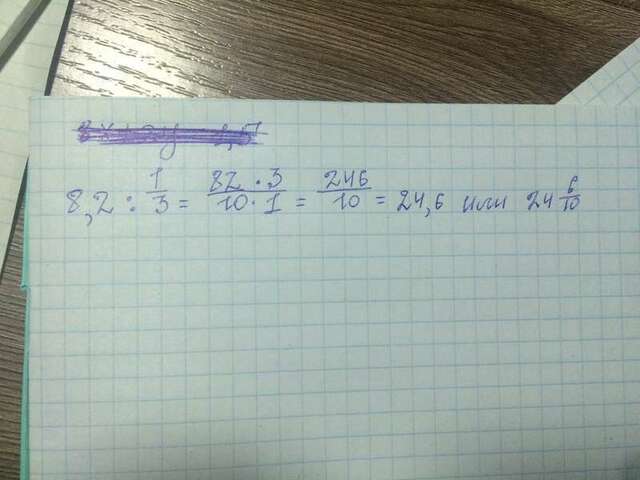 8,2 : 1/3 = 82 · 3/10 · 1 = 246/10 = 24,6 или 24 6/10